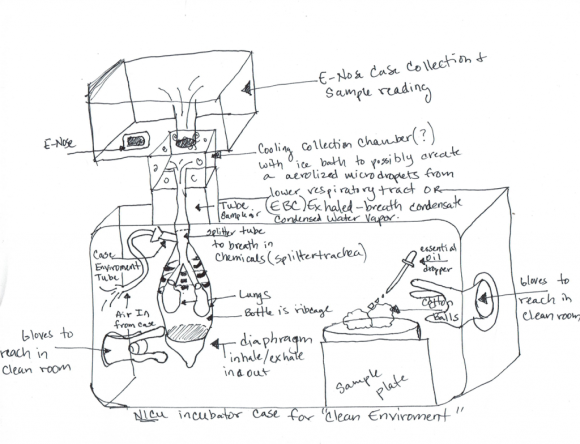 E-Nose Case Collection &
Sample reading
E-Nose
Cooling collection chamber(?)
with ice bath to possibly create
a aerolized microdroplets from
lower respiratory tract OR
(EBC) Exhaled-breath condensate
Condensed Water Vapor.
Tube
Sample air
Splitter tube
to breath in
chemicals (splittertrachea)
Case
Enviroment
Tube
Air In
from case
essential
oil
dropper
Cotton
Balls
Gloves to
reach in
clean room
Lungs
Bottle is ribcage
Gloves to
reach in
clean room
diaphragm
inhale/exhale
in & out
Sample
plate
NICU incubator case for "Clean Enviroment"